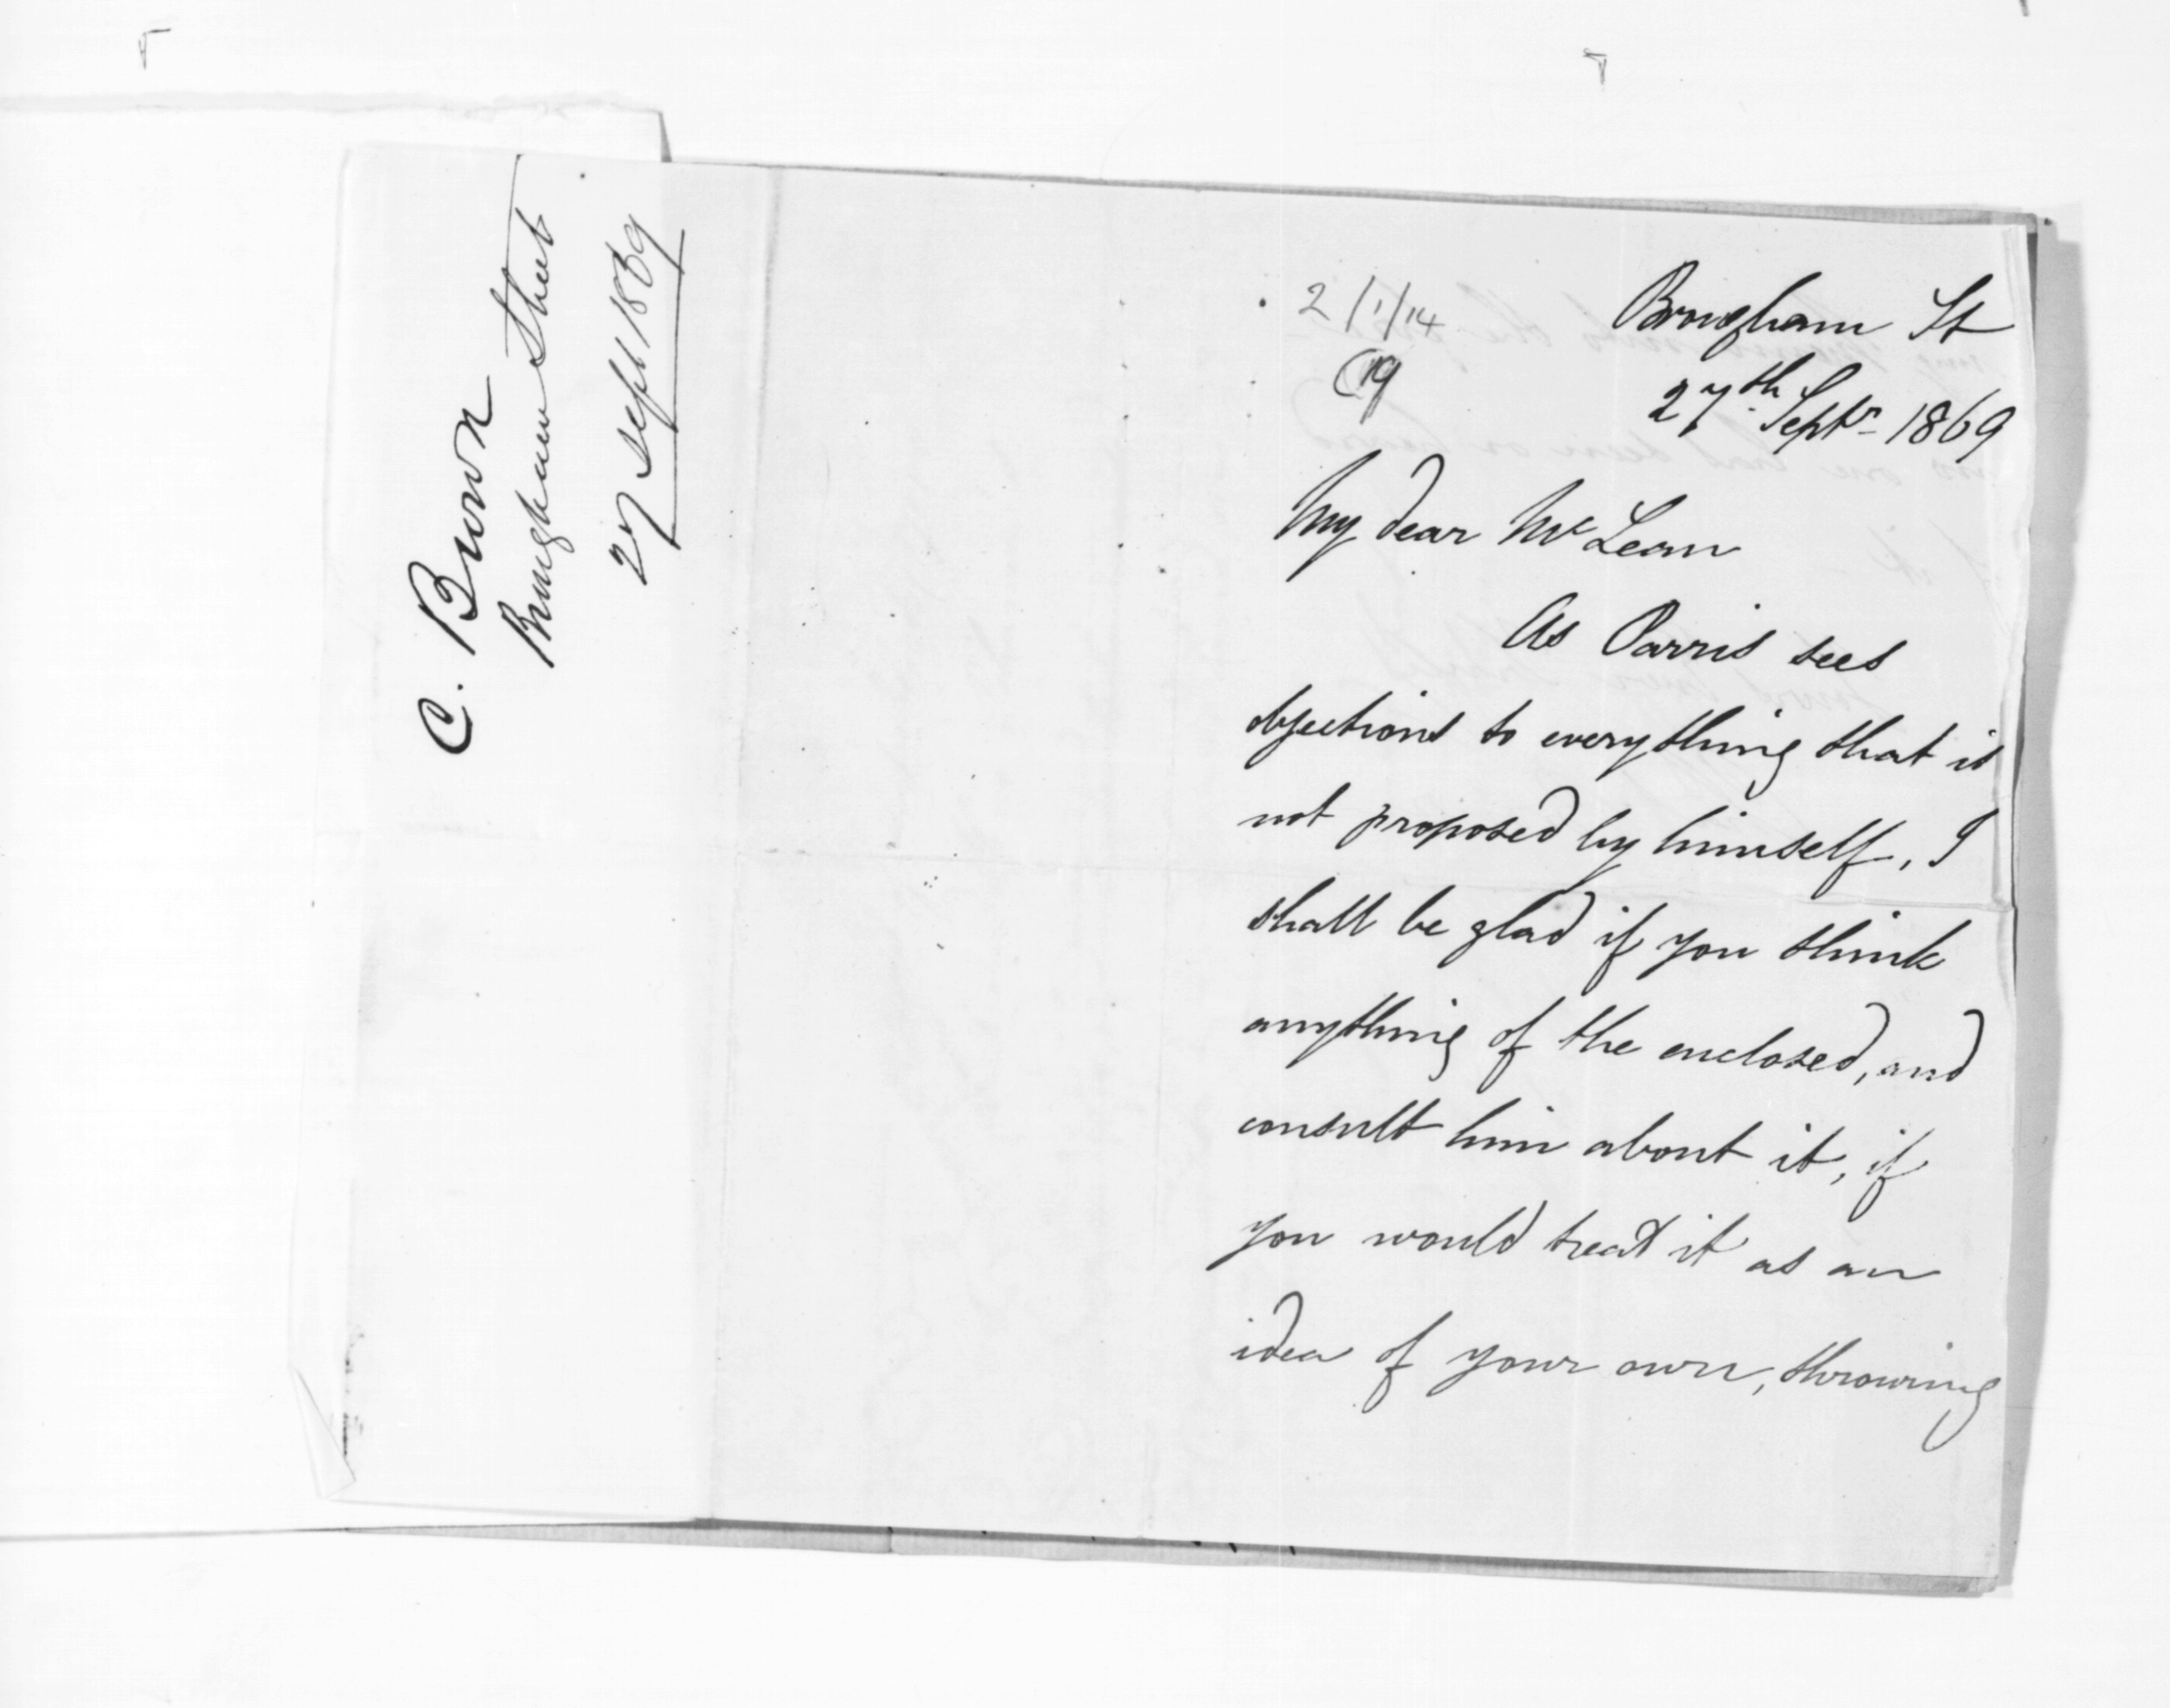 C. Brown
Brougham Street
27 Sept 1869
2/1/14
(19
Brougham St
27th Septr 1869
My dear McLean
As Parris sees
objections to everything that is
not proposed by himself, I
shall be glad if you think
anything of the enclosed, and
consult him about it, if
you would treat it as an
idea of your own, throwing